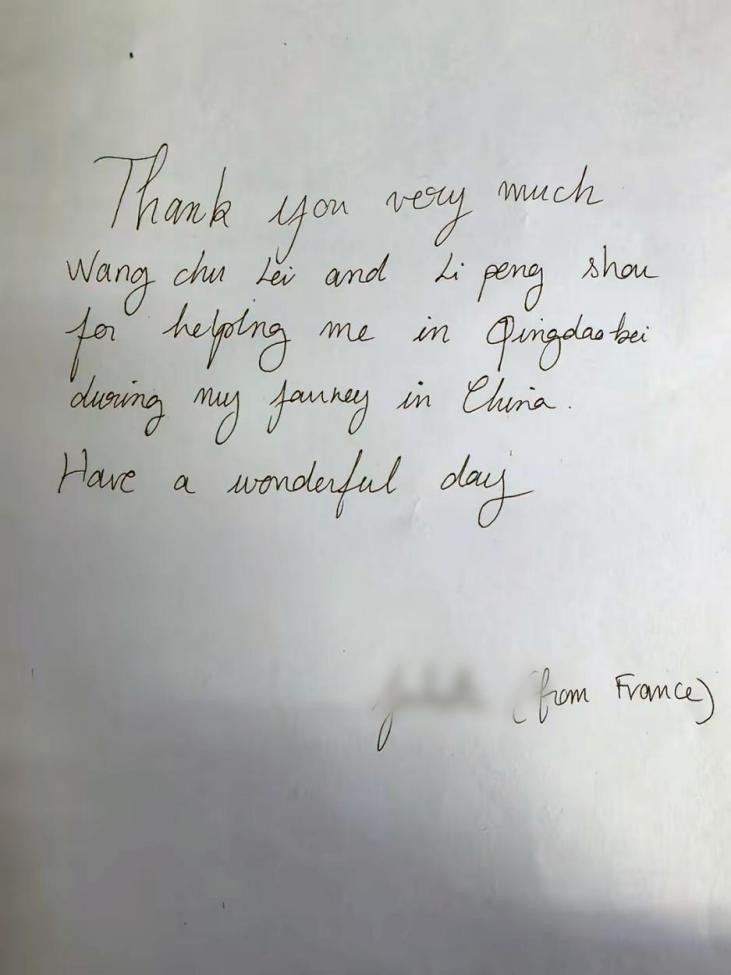 Thank you very much
Wang chu Lei and Li peng shou
for helping me in Qingdaobei
during my journey in China.
Have a wonderful day
(from France)